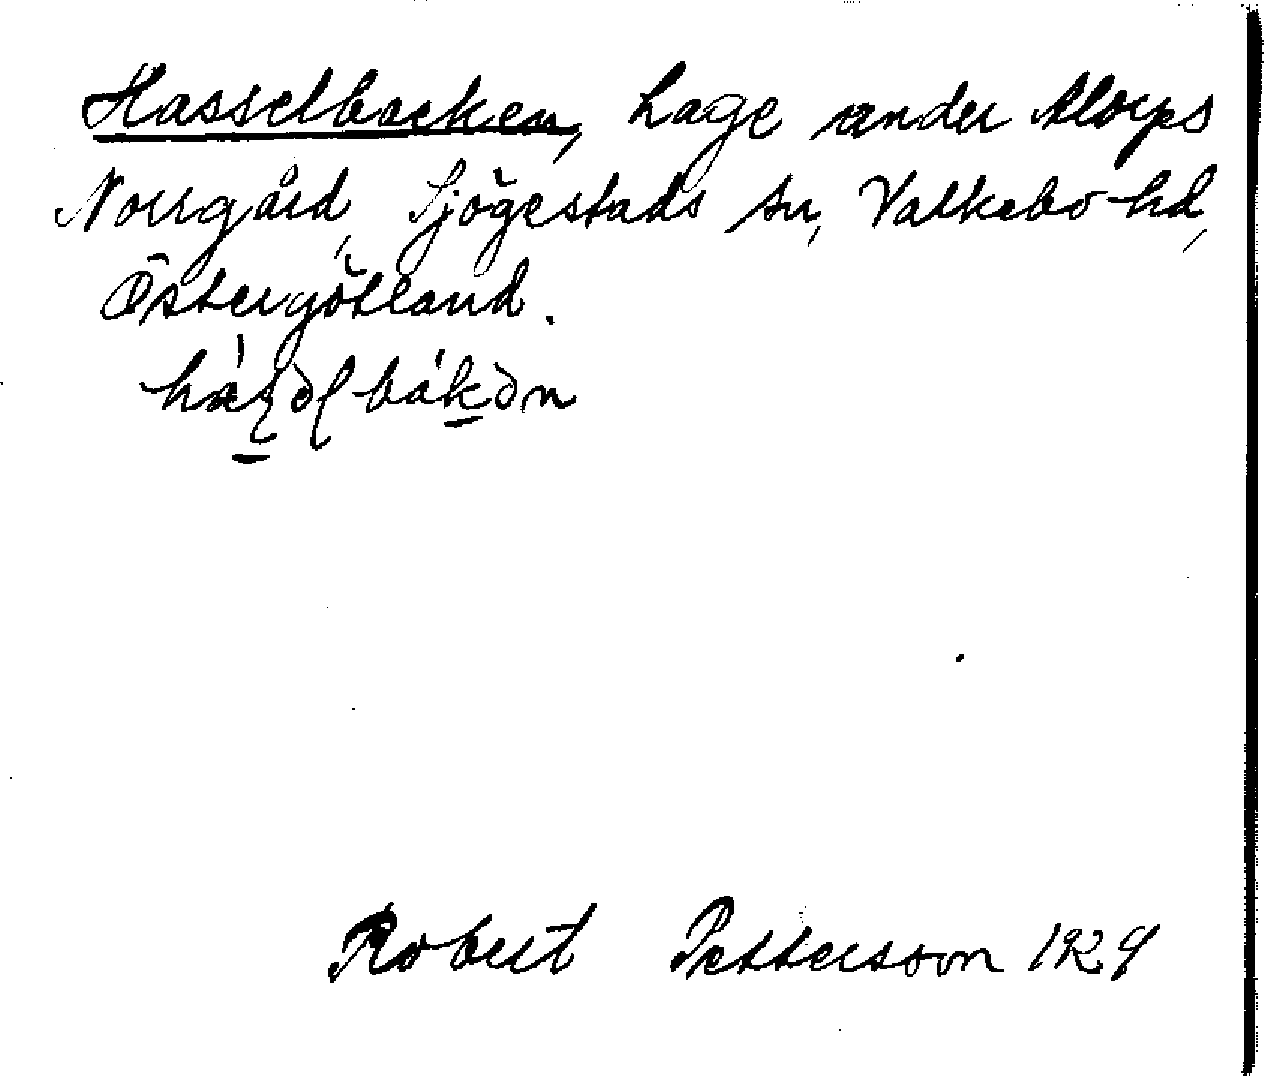 Hasselbacken, hage under Alorps
Norrgård, Sjögestads sn, Valkebo hd,
Östergötland.
Robert Pettersson 1929